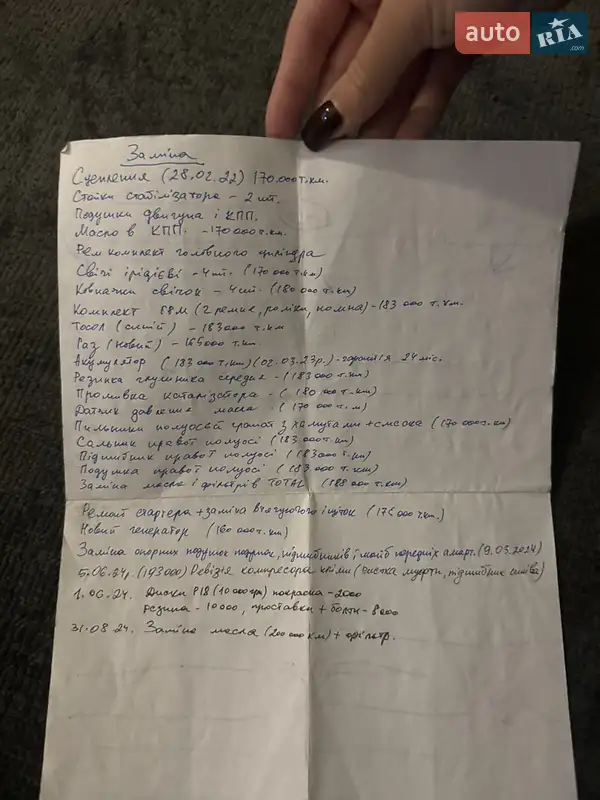 auto RIA .com
Заміна
Сцеплення (28.02.22) 170.000 т.км.
Стойки стабілізатора - 2 шт.
Подушки двигуна і КПП.
Масло в КПП. - 170 000 т.км.
Рем комплект головного циліндра
Свічі ірідієві - 4 шт. (170 000 т.км)
Ковпачки свічок - 4 шт. (180 000 т.км)
Комплект ГРМ (2 ремня, ролики, помпа) - 183 000 т.км.
Тосол (синій) - 183 000 т.км
Газ (новий) - 165000 т.км.
Акумулятор (183 000 т.км) (02.03.23р.) - гарантія 24 міс.
Резинка глушника середня - (183 000 т.км)
Промивка каталізатора - (180 000 т.км)
Датчик давление масла - (170 000 т.м)
Пильники полуосей гранат з хамутами + смазка (170 000 т.км)
Сальник правої полуосі (183 000 т.км)
Підшипник правої полуосі (183 000 т.км)
Подушка правої полуосі (183 000 т.км)
Заміна масла і фільтрів TOTAL (188 000 т.км)
Ремонт стартера + заміна втягуючого і щіток (176 000 т.км.)
Новий генератор (160 000 т.км)
Заміна опорних подушок подушок, підшипників, передніх аморт. (9.03.2024)
5.06.24р. (193000) Ревізія компресора кліми (чистка муфти, підшипник)
1.06.24. Диски R18 (10 000 грн) покраска - 2000
резина - 10 000, проставки + болти - 8000
31.08.24. Заміна масла (200 000 км) + фільтр.